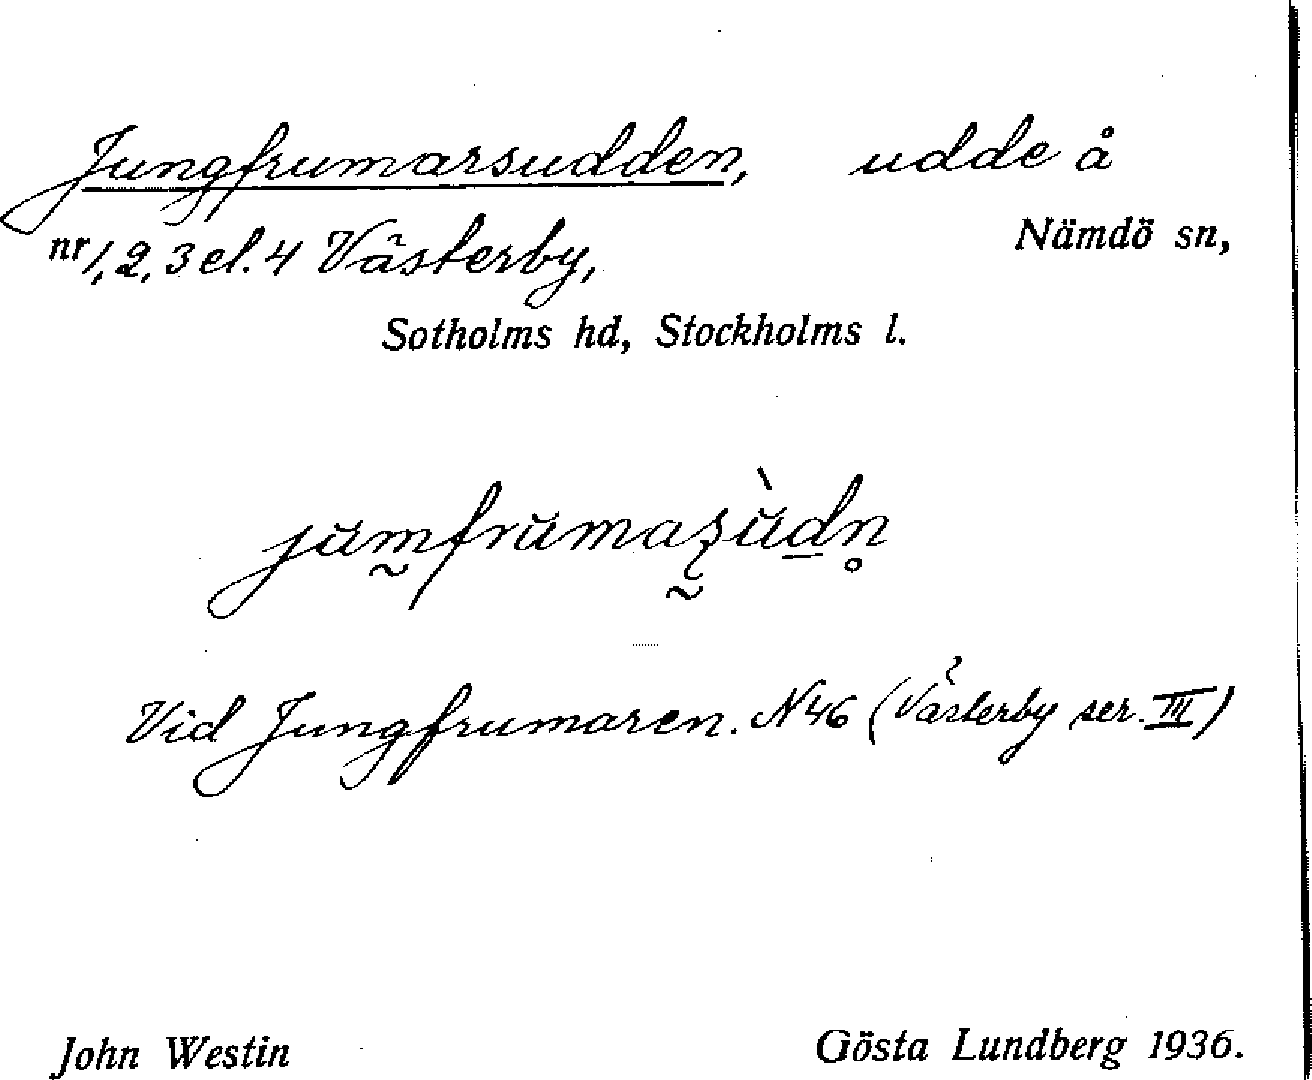 Jungfrumarsudden, udde å
nr 1, 2, 3 el. 4 Västerby, Nämdö sn,
Sotholms hd, Stockholms l.
jŭm̰frŭmaʂ̰ŭ̀d̲n̥
Vid Jungfrumaren. N46 (Västerby ser. III)
John Westin Gösta Lundberg 1936.